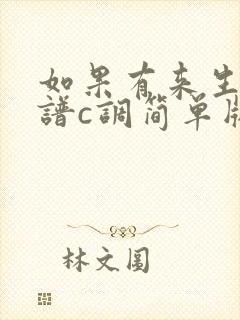 如果有来生
譜c調简单版
林文圆